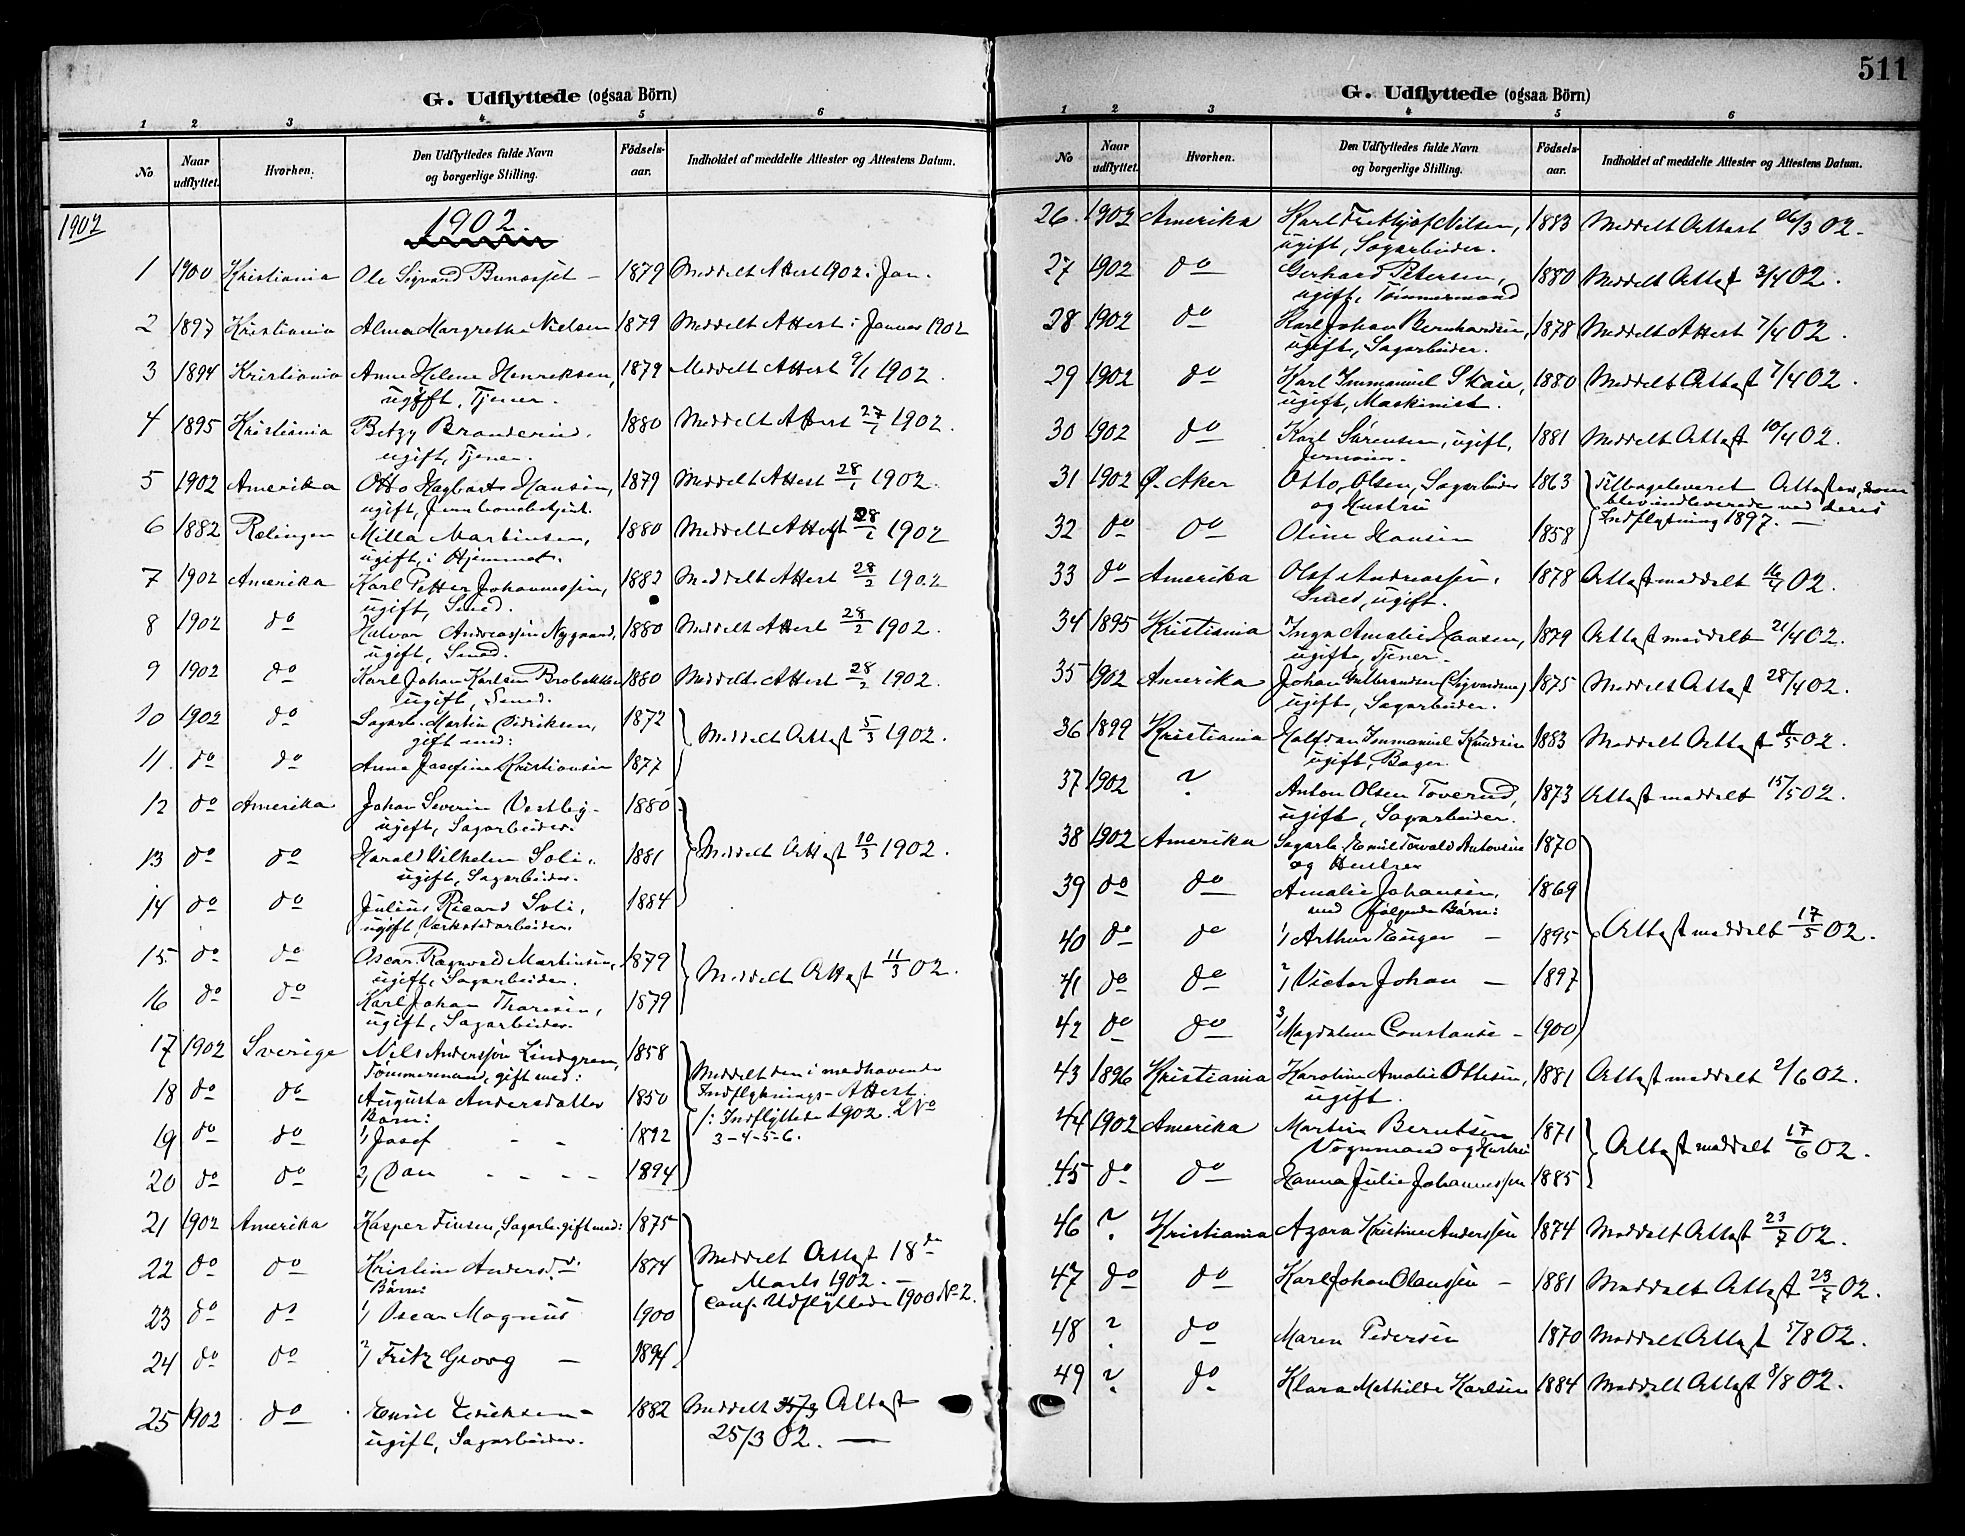 G. Udflyttede (ogsaa Börn)
1 2 3 4 5 6
No Naar udflyttet. Hvorhen. Den Udflyttedes fulde Navn og borgerlige Stilling. Födsels-aar. Indholdet af meddelte Attester og Attestens Datum.
1902 1902.
1 1900 Kristiania Ole Sigvard 1879 Meddelt Attest 1902 i Jan.
2 1897 Kristiania Alma Margrethe Nielsen 1879 Meddelt Attest i Januar 1902
3 1894 Kristiania Anne Helene Henriksen, 1879 Meddelt Attest 9/1 1902.
ugift, Tjener.
4 1895 Kristiania Betzy Branderud. 1880 Meddelt Attest 27/1 1902.
ugift, Tjener.
5 1902 Amerika Otto Hagbart Hansen, 1879 Meddelt Attest 28/1 1902.
ugift,
6 1882 Rælingen Milla Martinsen, 1880 Meddelt Attest 1902
ugift, i Hjemmet.
7 1902 Amerika Karl Petter Johannessen, 1882 Meddelt Attest 28/2 1902
ugift, Smed.
8 1902 do Halvor Andreassen Nygaard, 1880 Meddelt Attest 28/2 1902.
ugift, Smed.
9 1902 do Karl Johan Karlsen Brobakken 1880 Meddelt Attest 28/2 1902.
ugift, Smed.
10 1902 do Sagarb. Martin Didriksen, 1872 Meddelt Attest 5/3 1902.
gift med:
11. do do Anna Josefine Kristiansen 1877
12 do Amerika Johan Severin Vestby - 1880
ugift, Sagarbeider.
13 do do Harald Vilhelm Soli, 1881 Meddelt Attest 10/3 1902.
ugift, Sagarbeider.
14 do do Julius Ricard Soli, 1884
ugift, Værkstedarbeider.
15. do do Oscar Ragnvald Martinsen, 1879 Meddelt Attest 11/3 02.
ugift, Sagarbeider.
16 do do Karl Johan Thoresen, 1879
ugift, Sagarbeider.
17 1902 Sverige Nils Anderssøn Lindgren, 1858
Tømmermand, gift med: Meddelt den i medhavende
18 do do Augusta Andersdatter 1850 Indflytnings-Attest
Børn: /: Indflyttede 1902. LNo
19 do do 1/ Josef - - 1892 3-4-5-6.
20 do do 2/ Dan - - - 1894
21 1902 Amerika Kasper Finsen, Sagarb. gift med: 1875
22 do do Kristine Andersd. 1874 Meddelt Attest 18de
Børn: Marts 1902. -
23 do do 1/ Oscar Magnus 1900 Conf. Udflyttede 1900 No 2.
24 do do 2/ Fritz Georg - 1894
25 1902 do Emil Eriksen - 1882 Meddelt Attest
ugift, Sagarbeider. 25/3 02. -
511
G. Udflyttede (ogsaa Börn)
1 2 3 4 5 6
No Naar udflyttet. Hvorhen. Den Udflyttedes fulde Navn og borgerlige Stilling. Födsels-aar. Indholdet af meddelte Attester og Attestens Datum.
26. 1902 Amerika Karl Frithjof Nilsen, 1883 Meddelt Attest 26/3 02.
ugift, Sagarbeider.
27 1902 do Gerhard Petersen, 1880 Meddelt Attest 3/4 02.
ugift, Tømmermand
28 1902 do Karl Johan Bernhardsen, 1878 Meddelt Attest 7/4 02.
ugift, Sagarbeider.
29 1902 do Karl Immanuel Skau, 1880 Meddelt Attest 7/4 02.
ugift, Maskinist.
30 1902 do Karl Sørensen, ugift, 1881 Meddelt Attest 10/4 02.
31 1902 Ø. Aker Otto Olsen, Sagarbeider 1863 Tilbageleveret Attester, som
og Hustru blev indleverede ved deres
32 do do Oline Hansen 1858 Indflytning 1897. -
33 do Amerika Olaf Andreassen, 1878 Attest meddelt 16/4 02.
Smed, ugift.
34 1895 Kristiania Inga Amalie Hansen, 1879 Attest meddelt 21/4 02.
ugift, Tjener.
35 1902 Amerika Johan Gulbrandsen (Sigvardsen) 1875 Meddelt Attest 28/4 02.
ugift, Sagarbeider.
36 1899 Kristiania Halfdan Immanuel Knudsen 1883 Meddelt Attest 02.
ugift, Bager.
37 1902 ? Anton Olsen Toverud, 1873 Attest meddelt 15/5 02.
ugift, Sagarbeider.
38 1902 Amerika Sagarb. Emil Torvald Antonsen 1870
og Hustru
39 do do Amalie Johansen, 1869
med følgende Børn:
40 do do 1/ Arthur Eugen - 1895 Attest meddelt 17/5 02.
41 do do 2/ Victor Johan - 1897
42 do do 3/ Magdalene Constanse - 1900
43 1896 Kristiania Karoline Amalie Ottesen, 1881 Attest meddelt 2/6 02.
ugift.
44 1902 Amerika Martin Berntsen 1871 Attest meddelt 17/6 02.
Vognmand og Hustru
45 do do Hanna Julie Johannessen 1885
46 ? Kristiania Agora Kristine Anderssen 1874 Meddelt Attest 23/7 02.
47 do do Karl Johan Olaussen - 1881 Meddelt Attest 23/7 02.
48 ? do Maren Pedersen 1870 Meddelt Attest 5/8 02.
49 ? do Klara Mathilde Karlsen 1884 Meddelt Attest 8/8 02.